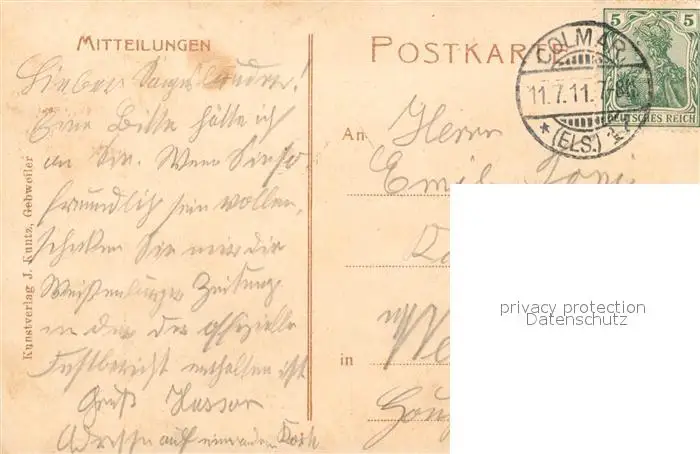 MITTEILUNGEN
Lieber Sangesbruder!
Eine Bitte hätte ich
an Sie. Wenn Sie so
freundlich sein wollen,
schicken Sie mir die
Weißenburger Zeitung
in der der offizielle
Festbericht enthalten ist
Gruß
Adresse auf einer andern Karte
Kunstverlag J. Kuntz, Gebweiler
POSTKARTE
5 5
DEUTSCHES REICH
COLMAR
11.7.11.7-8N
* (ELS.)
An Herrn
Emil
in
privacy protection
Datenschutz